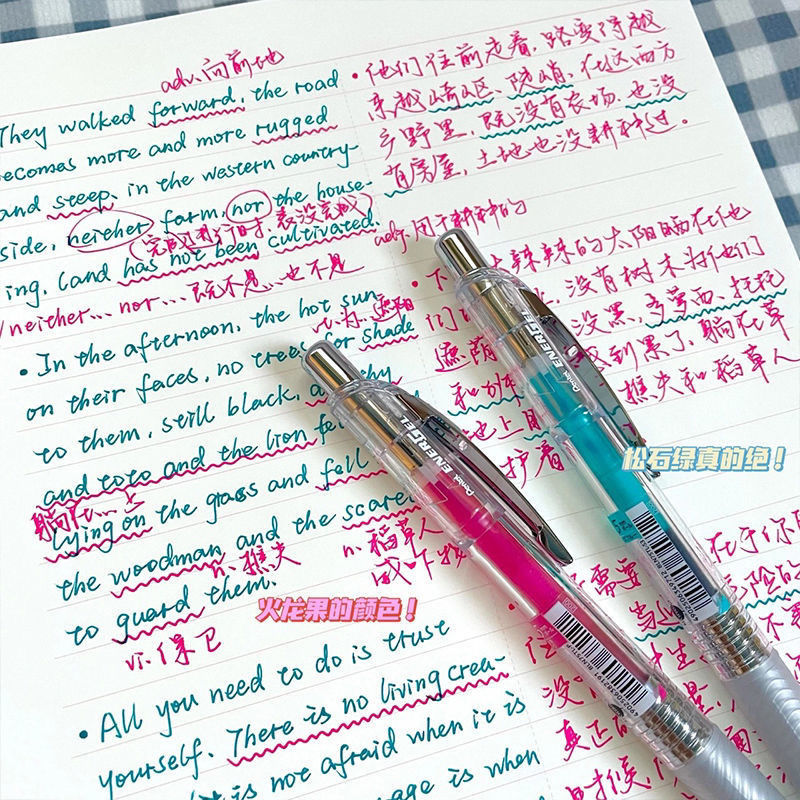 adv.向前地
They walked forward, the road
becomes more and more rugged
and steep, in the western country-
side, neither farm, nor the house-
(完成进行时,表没完成)
ing, land has not been cultivated.
neither... nor... 既不是...也不是
• In the afternoon, the hot sun
on their faces, no trees for shade
to them, still black,
and toto and the lion fell
lying on the grass and fell
躺在...上
the woodman and the scare
n.樵夫
n.稻草人
to guard them.
vi.保卫
• All you need to do is trust
yourself. There is no living crea-
it is not afraid when it is
is when
• 他们往前走着,路变得越
来越崎岖、陡峭,在这西方
乡野里,既没有农场,也没
有房屋,土地也没耕种过。
adj.用于耕种的
• 下
辣辣的太阳晒在他
没有树木为他们
遮荫
没黑,多萝西、托托
感到累了,躺在草
樵夫和稻草人
护着
在于你
需要
危险的
真正的
时候
Pentel ENERGEL
Pentel ENERGEL
松石绿真的绝!
火龙果的颜色!